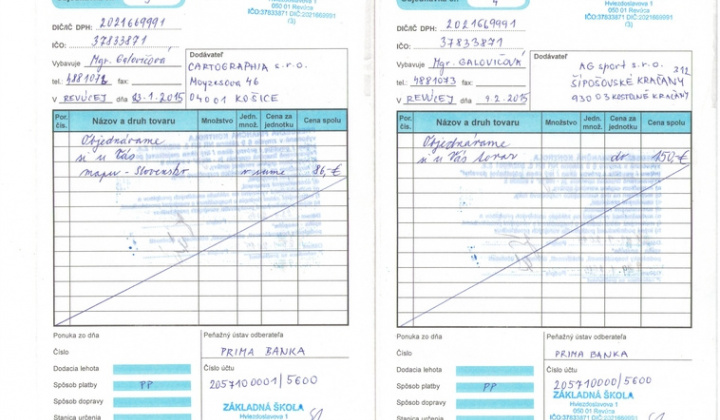 Hviezdoslavova 1
050 01 Revúca
IČO:37833871 DIČ:2021669991
(3)
DIČ/IČ DPH: 2021669991
IČO: 37833871
Vybavuje Mgr. Galovičová
tel. 4881073 fax:
V REVÚCEJ dňa 23.1.2015
Dodávateľ
CARTOGRAPHIA s.r.o.
Moyzesova 46
04001 KOŠICE
Por. čís. Názov a druh tovaru Množstvo Jedn. množ. Cena za jednotku Cena spolu
Objednávame
si u Vás
mapu - Slovensko v sume 86,-€
Ponuka zo dňa
Číslo
Dodacia lehota
Spôsob platby PP
Spôsob dopravy
Stanica určenia
Peňažný ústav odberateľa
PRIMA BANKA
Číslo účtu
2057100001/5600
ZÁKLADNÁ ŠKOLA
Hviezdoslavova 1
4
Hviezdoslavova 1
050 01 Revúca
IČO:37833871 DIČ:2021669991
(3)
DIČ/IČ DPH: 2021669991
IČO: 37833871
Vybavuje Mgr. GALOVIČOVÁ
tel. 4881073 fax:
V REVÚCEJ dňa 9.2.2015
Dodávateľ
AG sport s.r.o.
ŠIPOŠOVSKÉ KRAČANY 212
930 03 KOSTOLNÉ KRAČANY
Por. čís. Názov a druh tovaru Množstvo Jedn. množ. Cena za jednotku Cena spolu
Objednávame
si u Vás tovar do 150,-€
Ponuka zo dňa
Číslo
Dodacia lehota
Spôsob platby PP
Spôsob dopravy
Peňažný ústav odberateľa
PRIMA BANKA
Číslo účtu
205710000/5600
ZÁKLADNÁ ŠKOLA
Hviezdoslavova 1
050 01 Revúca